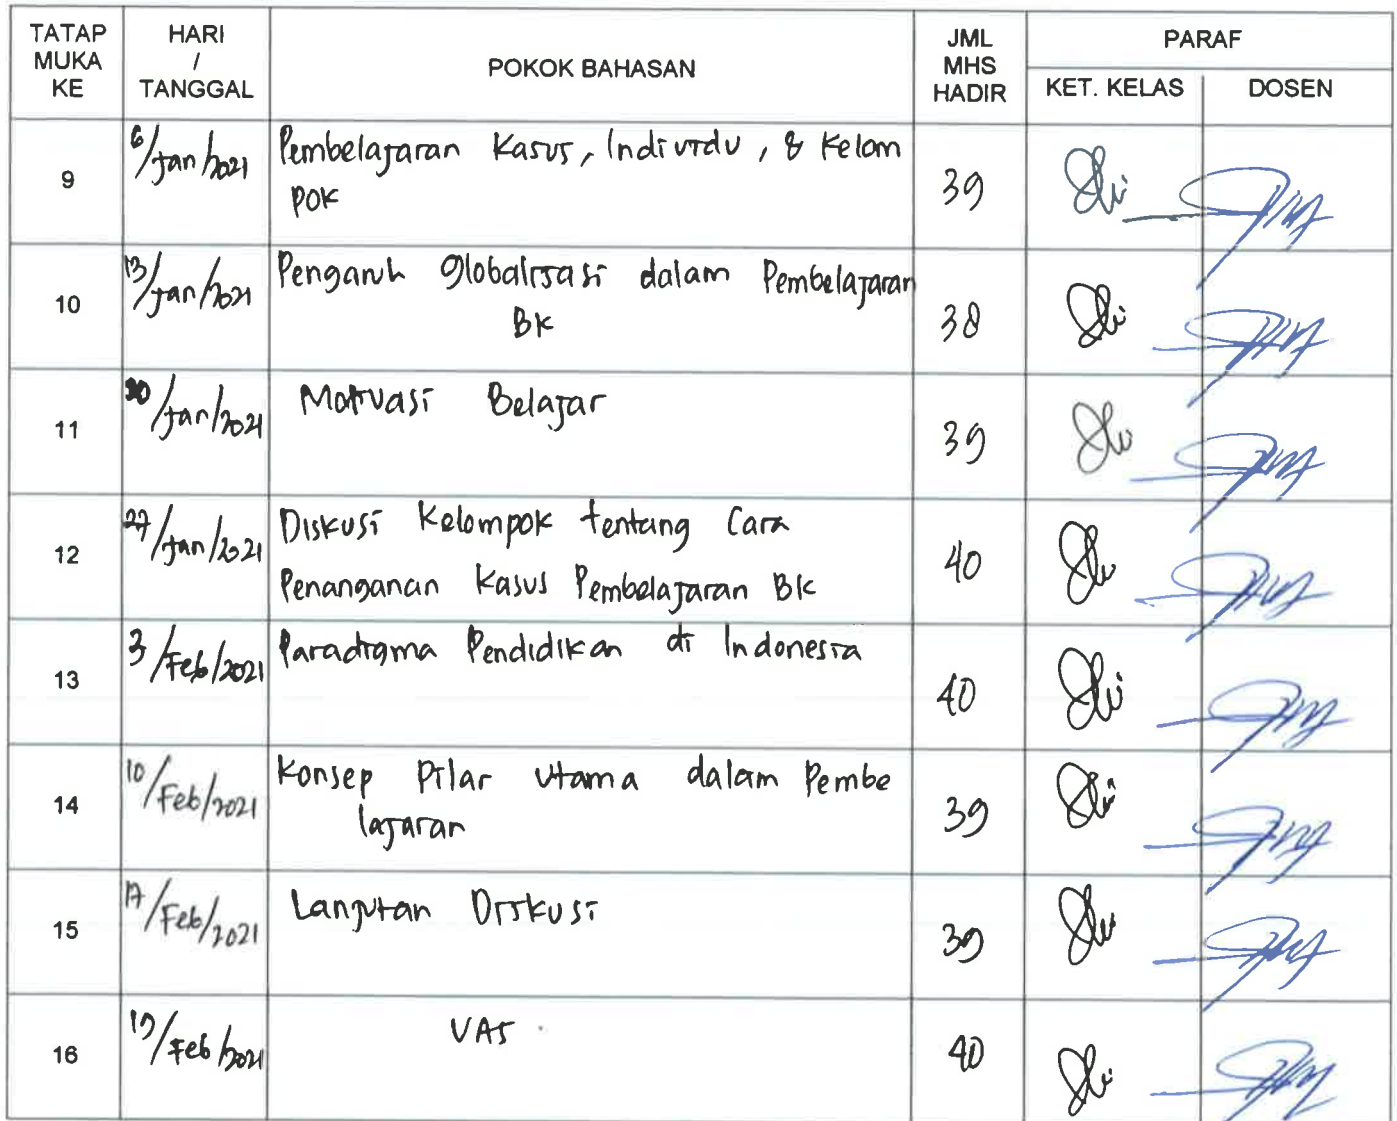 TATAP MUKA KE | HARI / TANGGAL | POKOK BAHASAN | JML MHS HADIR | PARAF
KET. KELAS | DOSEN
9 | 6/Jan/2021 | Pembelajaran Kasus, Individu, & Kelom | 39
pok
10 | 13/Jan/2021 | Pengaruh globalisasi dalam Pembelajaran | 38
BK
11 | 20/Jan/2021 | Motivasi Belajar | 39
12 | 27/Jan/2021 | Diskusi Kelompok tentang Cara | 40
Penanganan Kasus Pembelajaran BK
13 | 3/Feb/2021 | Paradigma Pendidikan di Indonesia | 40
14 | 10/Feb/2021 | Konsep Pilar utama dalam Pembe | 39
lajaran
15 | 17/Feb/2021 | Lanjutan Diskusi | 39
16 | 19/Feb/2021 | UAS | 40